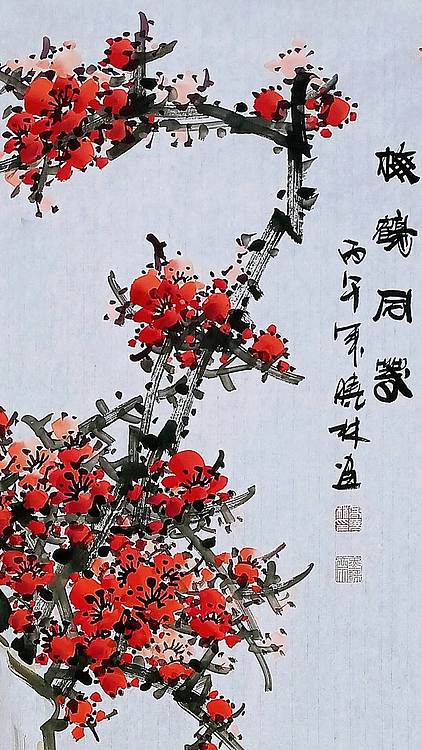 梅鶴同春
丙午 晓林画